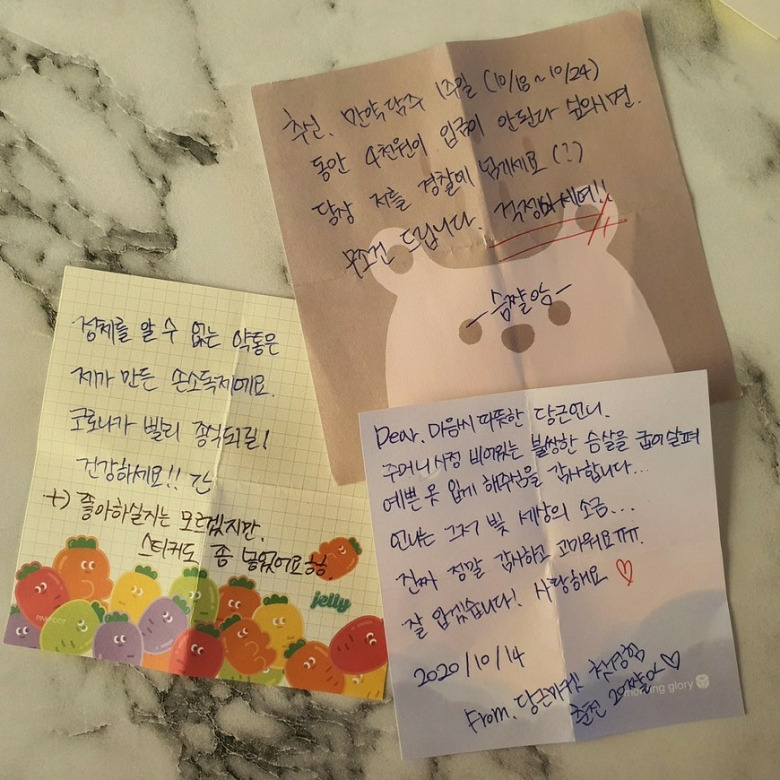 추신. 만약 담주 1주일 (10/18~10/24)
동안 4천원이 입금이 안된다 싶으시면
당장 저를 경찰에 넘기세요 (?)
무조건 드립니다. 걱정마세여!!
정체를 알 수 없는 약통은
제가 만든 손소독제예요.
코로나가 빨리 종식되길!
건강하세요!!
+) 좋아하실지는 모르겠지만,
스티커도 좀 넣었어요ㅎㅎ.
jelly
Dear. 마음씨 따뜻한 당근언니.
주머니 사정 비어있는 불쌍한 스무살을 굽이살펴
예쁜 옷 입게 해주심을 감사합니다...
언니는 그저 빛 세상의 소금...
진짜 정말 감사하고 고마워요ㅠㅠ.
잘 입겠습니다! 사랑해요 ♡
2020/10/14
From. 당근마켓 첫경험
춘천 20짤이 ♡
morning glory